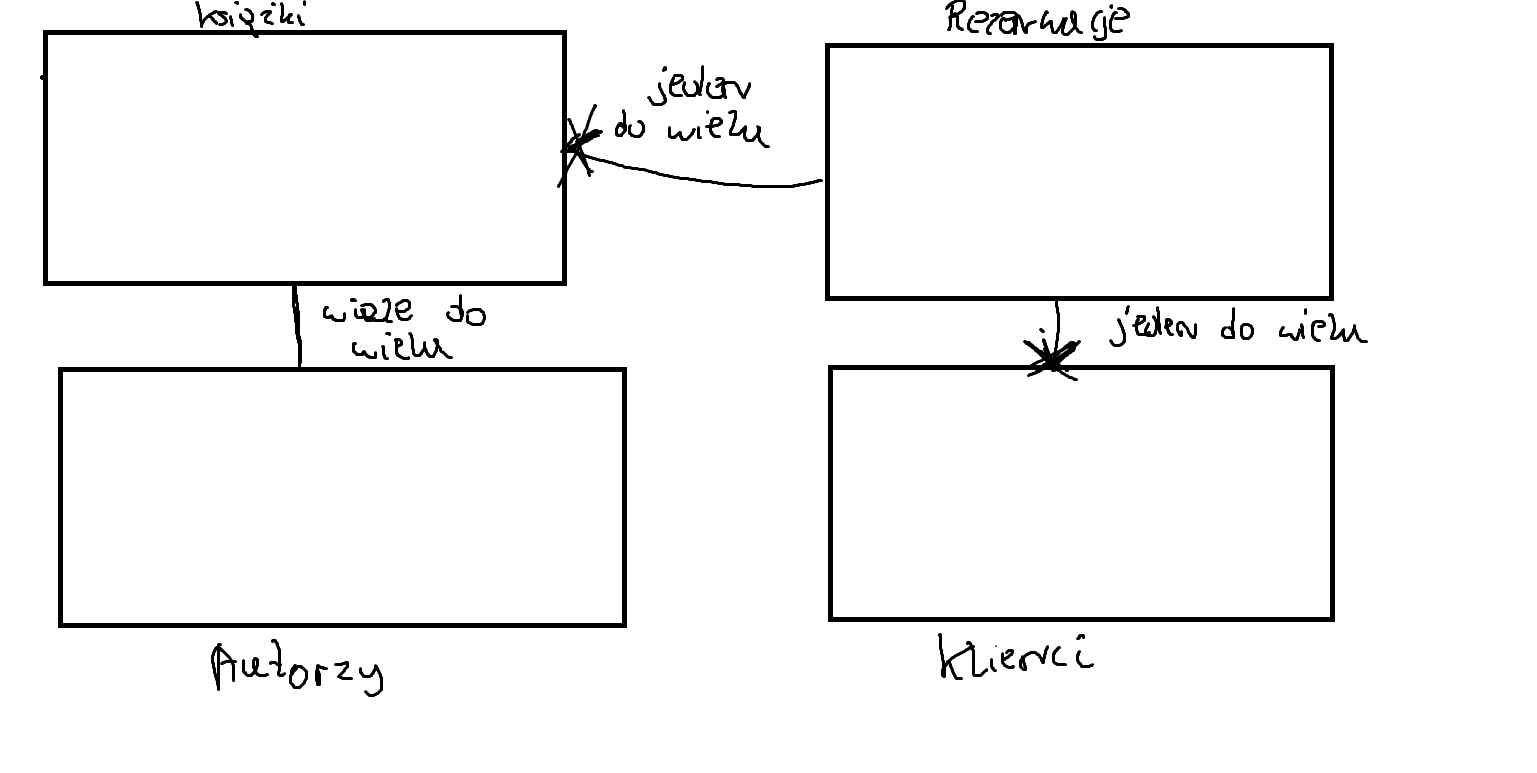 książki
Rezerwacje
jeden
do wielu
wiele do
wielu
jeden do wielu
Autorzy
Klienci